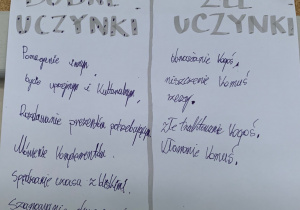 DOBRE
UCZYNKI
Pomaganie innym,
bycie uprzejmym i kulturalnym,
Rozdawanie prezentów potrzebującym
Mówienie komplementów
Spędzanie czasu z bliskimi,
ZŁE
UCZYNKI
obrażanie kogoś,
niszczenie komuś
rzeczy,
złe traktowanie kogoś,
kłamanie komuś,